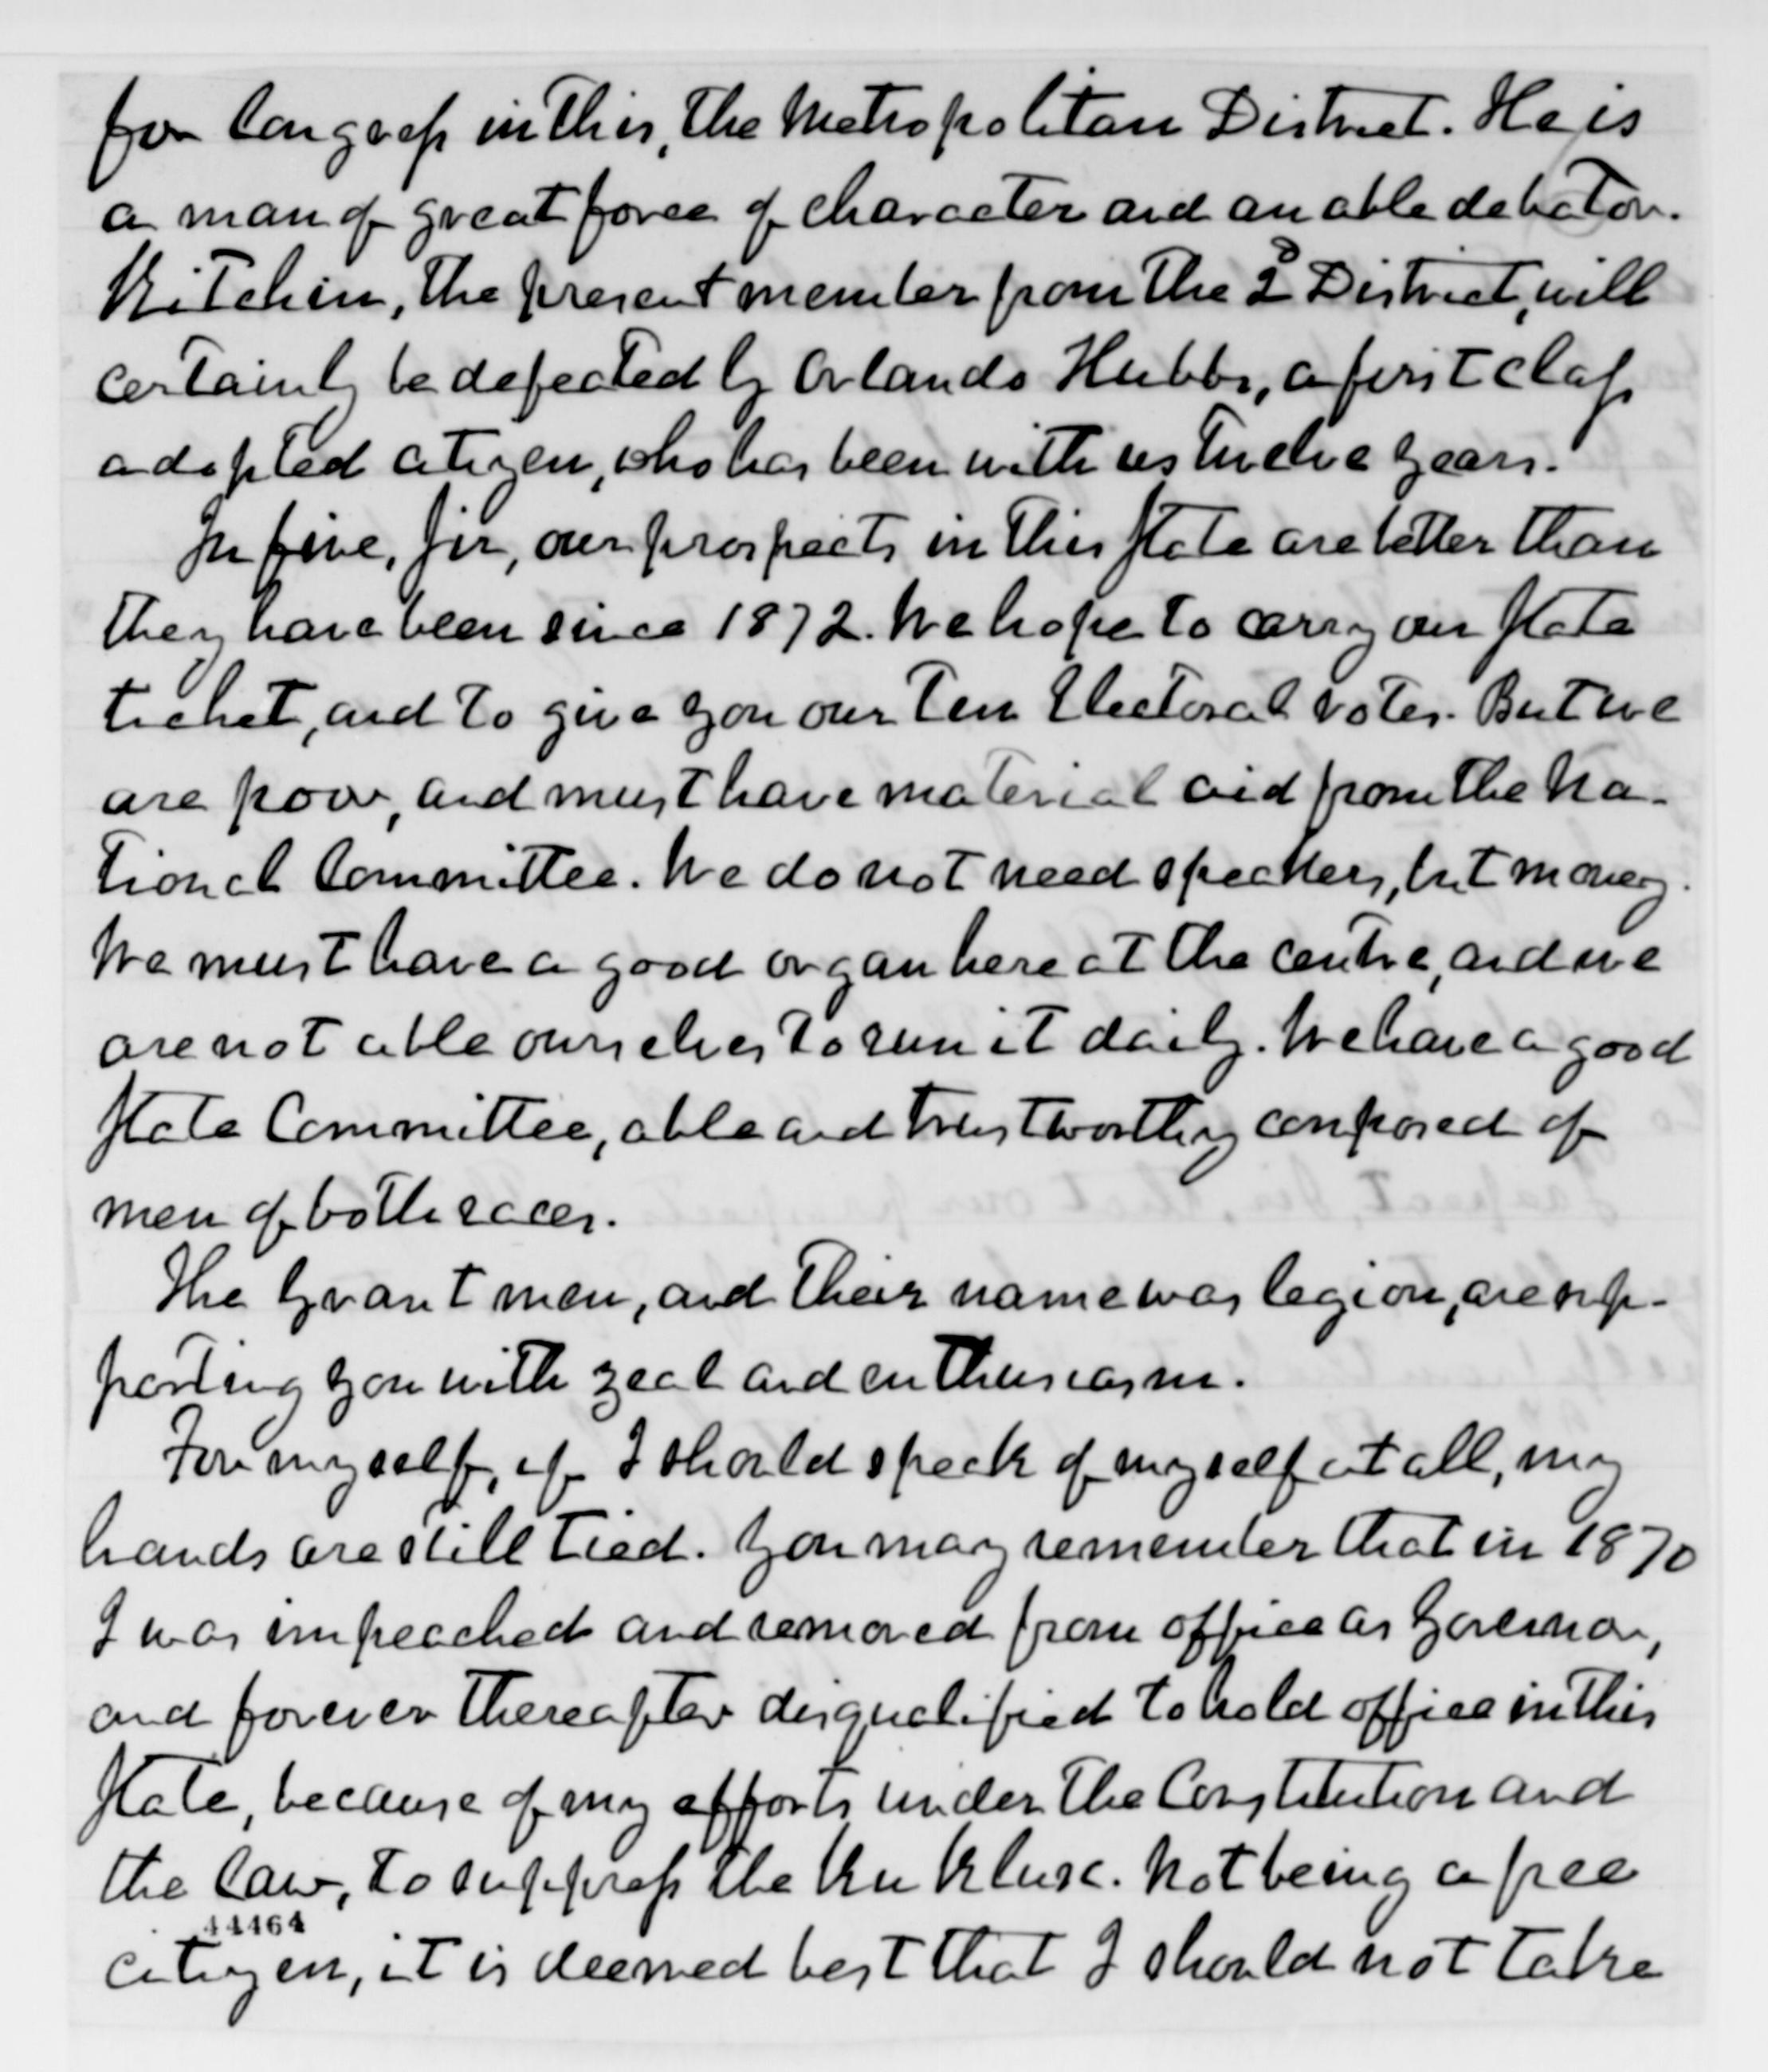 for Congress in this, the Metropolitan District. He is
a man of great force of character and an able debator.
Kitchin, the present member from the 2d District, will
certainly be defeated by Orlando Hubbs, a first class
adopted citizen, who has been with us twelve years.
In fine, Sir, our prospects in this State are better than
they have been since 1872. We hope to carry our State
ticket, and to give you our ten Electoral votes. But we
are poor, and must have material aid from the Na-
tional Committee. We do not need speakers, but money.
We must have a good organ here at the centre, and we
are not able ourselves to run it daily. We have a good
State Committee, able and trustworthy composed of
men of both races.
The Grant men, and their name was legion, are sup-
porting you with zeal and enthusiasm.
For myself, if I should speak of myself at all, my
hands are still tied. You may remember that in 1870
I was impeached and removed from office as Governor,
and forever thereafter disqualified to hold office in this
State, because of my efforts under the Constitution and
the law, to suppress the Ku Klux. Not being a free
44464
citizen, it is deemed best that I should not take